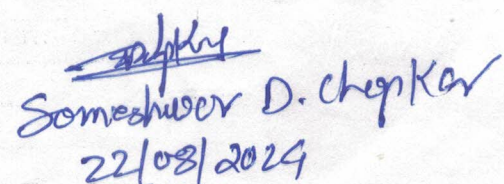 Someshwer D. Chopkar
22/08/2024